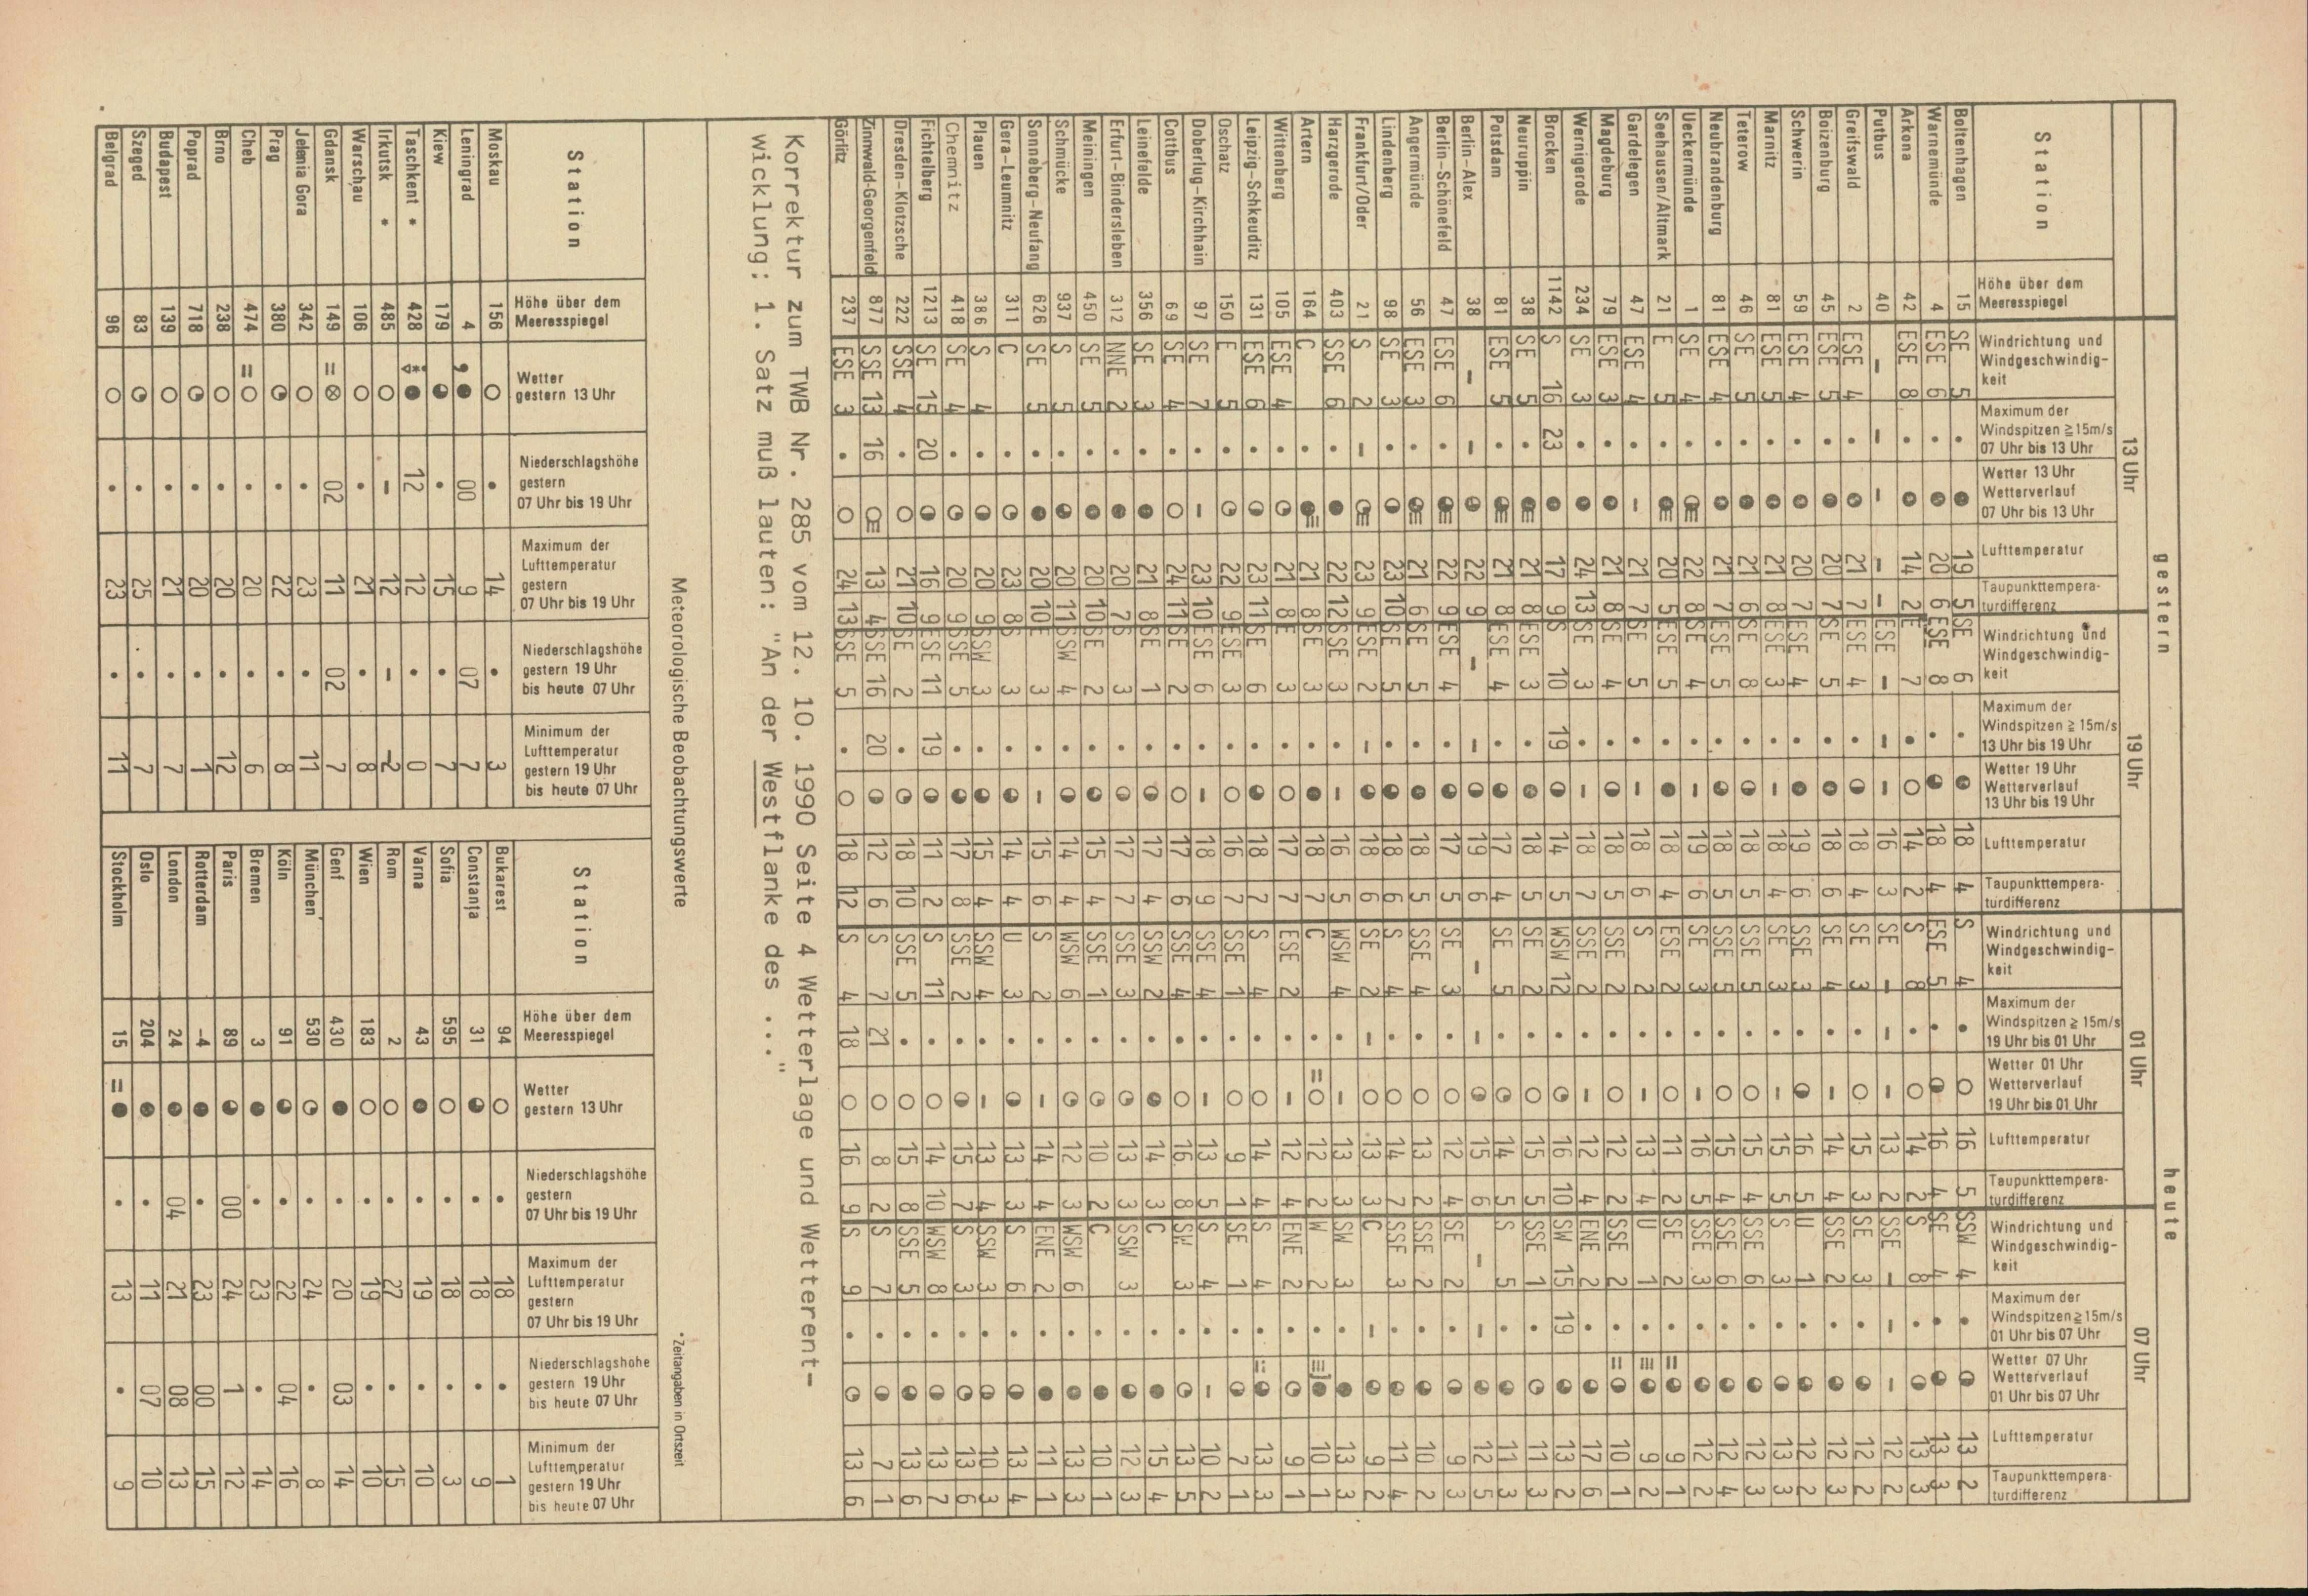 gestern heute
13 Uhr 19 Uhr 01 Uhr 07 Uhr
Station
Höhe über dem Meeresspiegel
Windrichtung und Windgeschwindig-keit
Maximum der Windspitzen ≧ 15m/s 07 Uhr bis 13 Uhr
Wetter 13 Uhr Wetterverlauf 07 Uhr bis 13 Uhr
Lufttemperatur
Taupunkttempera-turdifferenz
Windrichtung und Windgeschwindig-keit
Maximum der Windspitzen ≧ 15m/s 13 Uhr bis 19 Uhr
Wetter 19 Uhr Wetterverlauf 13 Uhr bis 19 Uhr
Lufttemperatur
Taupunkttempera-turdifferenz
Windrichtung und Windgeschwindig-keit
Maximum der Windspitzen ≧ 15m/s 19 Uhr bis 01 Uhr
Wetter 01 Uhr Wetterverlauf 19 Uhr bis 01 Uhr
Lufttemperatur
Taupunkttempera-turdifferenz
Windrichtung und Windgeschwindig-keit
Maximum der Windspitzen ≧ 15m/s 01 Uhr bis 07 Uhr
Wetter 07 Uhr Wetterverlauf 01 Uhr bis 07 Uhr
Lufttemperatur
Taupunkttempera-turdifferenz
Boltenhagen 15 SE 5 • 19 5 SE 6 • 18 4 S 4 • 16 5 SSW 4 • 13 2
Warnemünde 4 ESE 6 • 20 6 ESE 8 • 18 4 ESE 5 • 16 4 SE 4 • 13 3
Arkona 42 ESE 8 • 14 2 E 7 • 14 2 S 8 • 14 2 S 8 • 13 3
Putbus 40 – – – – – ESE – – – 16 3 SE – – – 13 2 SSE – – – 12 2
Greifswald 2 ESE 4 • 21 7 ESE 4 • 18 4 SE 3 • 15 3 SE 3 • 12 2
Boizenburg 45 ESE 5 • 20 7 SE 5 • 18 6 SE 4 • – 14 4 SSE 2 • 12 3
Schwerin 59 ESE 4 • 20 7 ESE 4 • 19 6 SSE 3 • 16 5 U 1 • 12 2
Marnitz 81 ESE 5 • 21 8 ESE 3 • – 18 4 SE 5 • – 15 5 S 3 • 13 3
Teterow 46 SE 5 • 21 6 SE 8 • 18 5 SSE 5 • 15 4 SSE 6 • 12 3
Neubrandenburg 81 ESE 4 • 21 7 ESE 5 • 18 5 SSE 5 • 15 4 SSE 6 • 12 4
Ueckermünde 1 SE 4 • 22 8 SE 4 • – 19 6 SE 3 • – 16 5 SSE 3 • 12 2
Seehausen/Altmark 21 E 5 • 20 5 ESE 5 • 18 4 ESE 2 • 11 2 SE 2 • 9 1
Gardelegen 47 ESE 4 • – 21 7 SE 5 • – 18 6 S 2 • – 13 4 U 1 • 9 2
Magdeburg 79 ESE 3 • 21 8 SE 4 • 18 5 SSE 2 • 12 2 SSE 2 • 10 1
Wernigerode 234 SE 3 • 24 13 SE 3 • – 18 7 SSE 2 • – 12 4 ENE 2 • 17 6
Brocken 1142 S 16 23 17 9 S 10 19 14 5 WSW 12 • 16 10 SW 15 19 13 2
Neuruppin 38 SE 5 • 21 8 ESE 3 • 18 5 SE 2 • 15 5 SSE 1 • 11 3
Potsdam 81 ESE 5 • 21 8 ESE 4 • 17 4 SE 5 • 14 5 S 5 • 11 3
Berlin-Alex 38 – – 22 9 – – 19 6 – – 15 6 – – 12 5
Berlin-Schönefeld 47 ESE 6 • 22 9 ESE 4 • 17 5 SE 3 • 12 4 SE 2 • 9 3
Angermünde 56 ESE 3 • 21 6 SE 5 • 18 5 SSE 4 • 13 2 SSE 2 • 10 2
Lindenberg 98 SE 3 • 23 10 SE 5 • 18 6 S 4 • 14 7 SSE 3 • 11 4
Frankfurt/Oder 21 S 2 – 23 9 ESE 2 – 18 6 SE 2 – 13 3 C – 9 2
Harzgerode 403 SSE 6 • 22 12 SSE 3 • – 16 5 WSW 4 • – 13 3 SW 3 • 13 3
Artern 164 C • 21 8 SE 3 • 18 7 C • 12 2 W 2 • 10 1
Wittenberg 105 ESE 4 • 21 8 E 3 • 17 7 ESE 2 • – 12 4 ENE 2 • 9 1
Leipzig-Schkeuditz 131 ESE 6 • 23 11 SE 6 • 18 7 S 4 • 14 4 S 4 • 13 3
Oschatz 150 E 5 • 22 9 ESE 3 • 16 7 SSE 1 • 9 1 SE 1 • 7 1
Doberlug-Kirchhain 97 SE 7 • – 23 10 ESE 6 • – 18 9 SSE 4 • – 13 5 S 4 • – 10 2
Cottbus 69 SE 4 • 24 11 SE 2 • 17 6 SSE 4 • 16 8 SW 3 • 13 5
Leinefelde 356 SE 3 • 21 8 SE 1 • 17 4 SSW 2 • 14 3 C • 15 4
Erfurt-Bindersleben 312 NNE 2 • 20 7 S 3 • 17 7 SSE 3 • 13 3 SSW 3 • 12 3
Meiningen 450 SE 5 • 20 10 SE 2 • 15 4 SSE 1 • 10 2 C • 10 1
Schmücke 937 S 5 • 20 11 SSW 4 • 14 4 WSW 6 • 12 3 WSW 6 • 13 3
Sonneberg-Neufang 626 SE 5 • 20 10 E 3 • – 15 6 S 2 • – 14 4 ENE 2 • 11 1
Gera-Leumnitz 311 C • 23 8 S 3 • 14 4 U 3 • 13 3 S 6 • 13 4
Plauen 386 S 4 • 20 9 SSW 3 • 15 4 SSW 4 • – 13 4 SSW 3 • 10 3
Chemnitz 418 SE 4 • 20 9 SSE 5 • 17 8 SSE 2 • 15 7 S 3 • 13 6
Fichtelberg 1213 SE 15 20 16 9 ESE 11 19 11 2 S 11 • 14 10 WSW 8 • 13 7
Dresden-Klotzsche 222 SSE 4 • 21 10 SE 2 • 18 10 SSE 5 • 15 8 SSE 5 • 13 6
Zinnwald-Georgenfeld 877 SSE 13 16 13 4 SSE 16 20 12 6 S 7 21 8 2 S 7 • 7 1
Görlitz 237 ESE 3 • 24 13 SSE 5 • 18 12 S 4 18 16 9 S 9 • 13 6
Korrektur zum TWB Nr. 285 vom 12. 10. 1990 Seite 4 Wetterlage und Wetterent-
wicklung: 1. Satz muß lauten: "An der Westflanke des ..."
Meteorologische Beobachtungswerte
*Zeitangaben in Ortszeit
Station
Höhe über dem Meeresspiegel
Wetter gestern 13 Uhr
Niederschlagshöhe gestern 07 Uhr bis 19 Uhr
Maximum der Lufttemperatur gestern 07 Uhr bis 19 Uhr
Niederschlagshöhe gestern 19 Uhr bis heute 07 Uhr
Minimum der Lufttemperatur gestern 19 Uhr bis heute 07 Uhr
Moskau 156 • 14 • 3
Leningrad 4 00 9 07 7
Kiew 179 • 15 • 7
Taschkent * 428 12 12 • 0
Irkutsk * 485 – 12 – -2
Warschau 106 • 21 • 8
Gdansk 149 02 11 02 7
Jelenia Gora 342 • 23 • 11
Prag 380 • 22 • 8
Cheb 474 • 20 • 6
Brno 238 • 20 • 12
Poprad 718 • 20 • 1
Budapest 139 • 21 • 7
Szeged 83 • 25 • 7
Belgrad 96 • 23 • 11
Station
Höhe über dem Meeresspiegel
Wetter gestern 13 Uhr
Niederschlagshöhe gestern 07 Uhr bis 19 Uhr
Maximum der Lufttemperatur gestern 07 Uhr bis 19 Uhr
Niederschlagshöhe gestern 19 Uhr bis heute 07 Uhr
Minimum der Lufttemperatur gestern 19 Uhr bis heute 07 Uhr
Bukarest 94 • 18 • 1
Constanţa 31 • 18 • 9
Sofia 595 • 18 • 3
Varna 43 • 19 • 10
Rom 2 • 27 • 15
Wien 183 • 19 • 10
Genf 430 • 20 03 14
München 530 • 24 • 8
Köln 91 • 22 04 16
Bremen 3 • 23 • 14
Paris 89 00 24 1 12
Rotterdam -4 • 23 00 15
London 24 04 21 08 13
Oslo 204 • 11 07 10
Stockholm 15 • 13 • 9